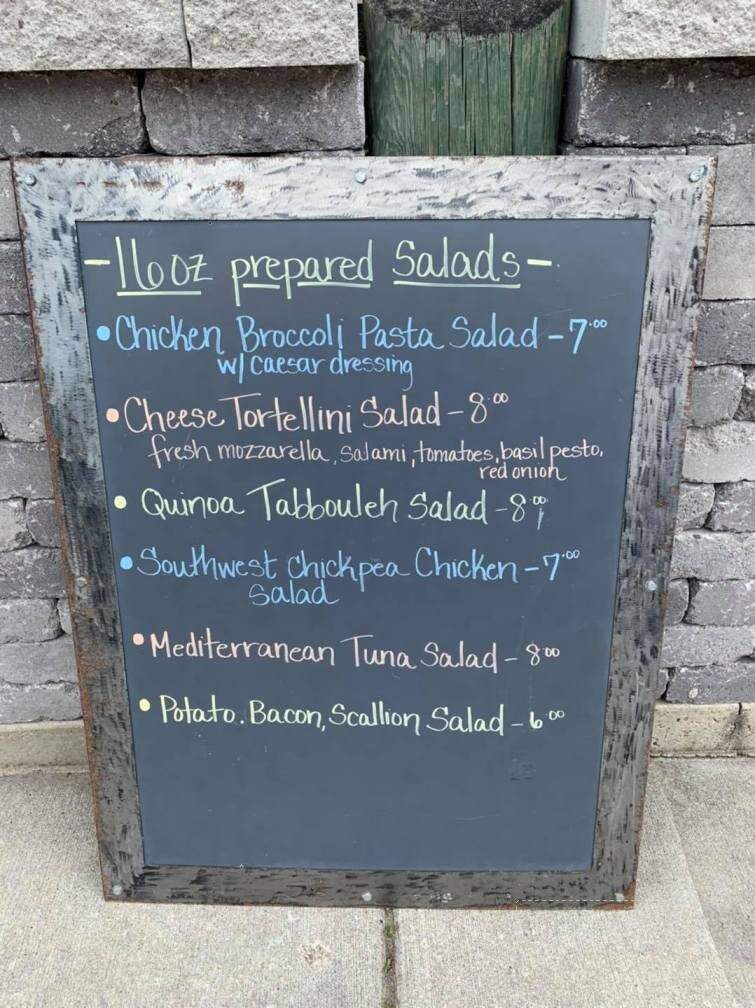 - 16oz prepared Salads -
• Chicken Broccoli Pasta Salad - 7.00
w/ caesar dressing
• Cheese Tortellini Salad - 8.00
fresh mozzarella, salami, tomatoes, basil pesto,
red onion
• Quinoa Tabbouleh Salad - 8.00
• Southwest Chickpea Chicken - 7.00
Salad
• Mediterranean Tuna Salad - 8.00
• Potato. Bacon, Scallion Salad - 6.00